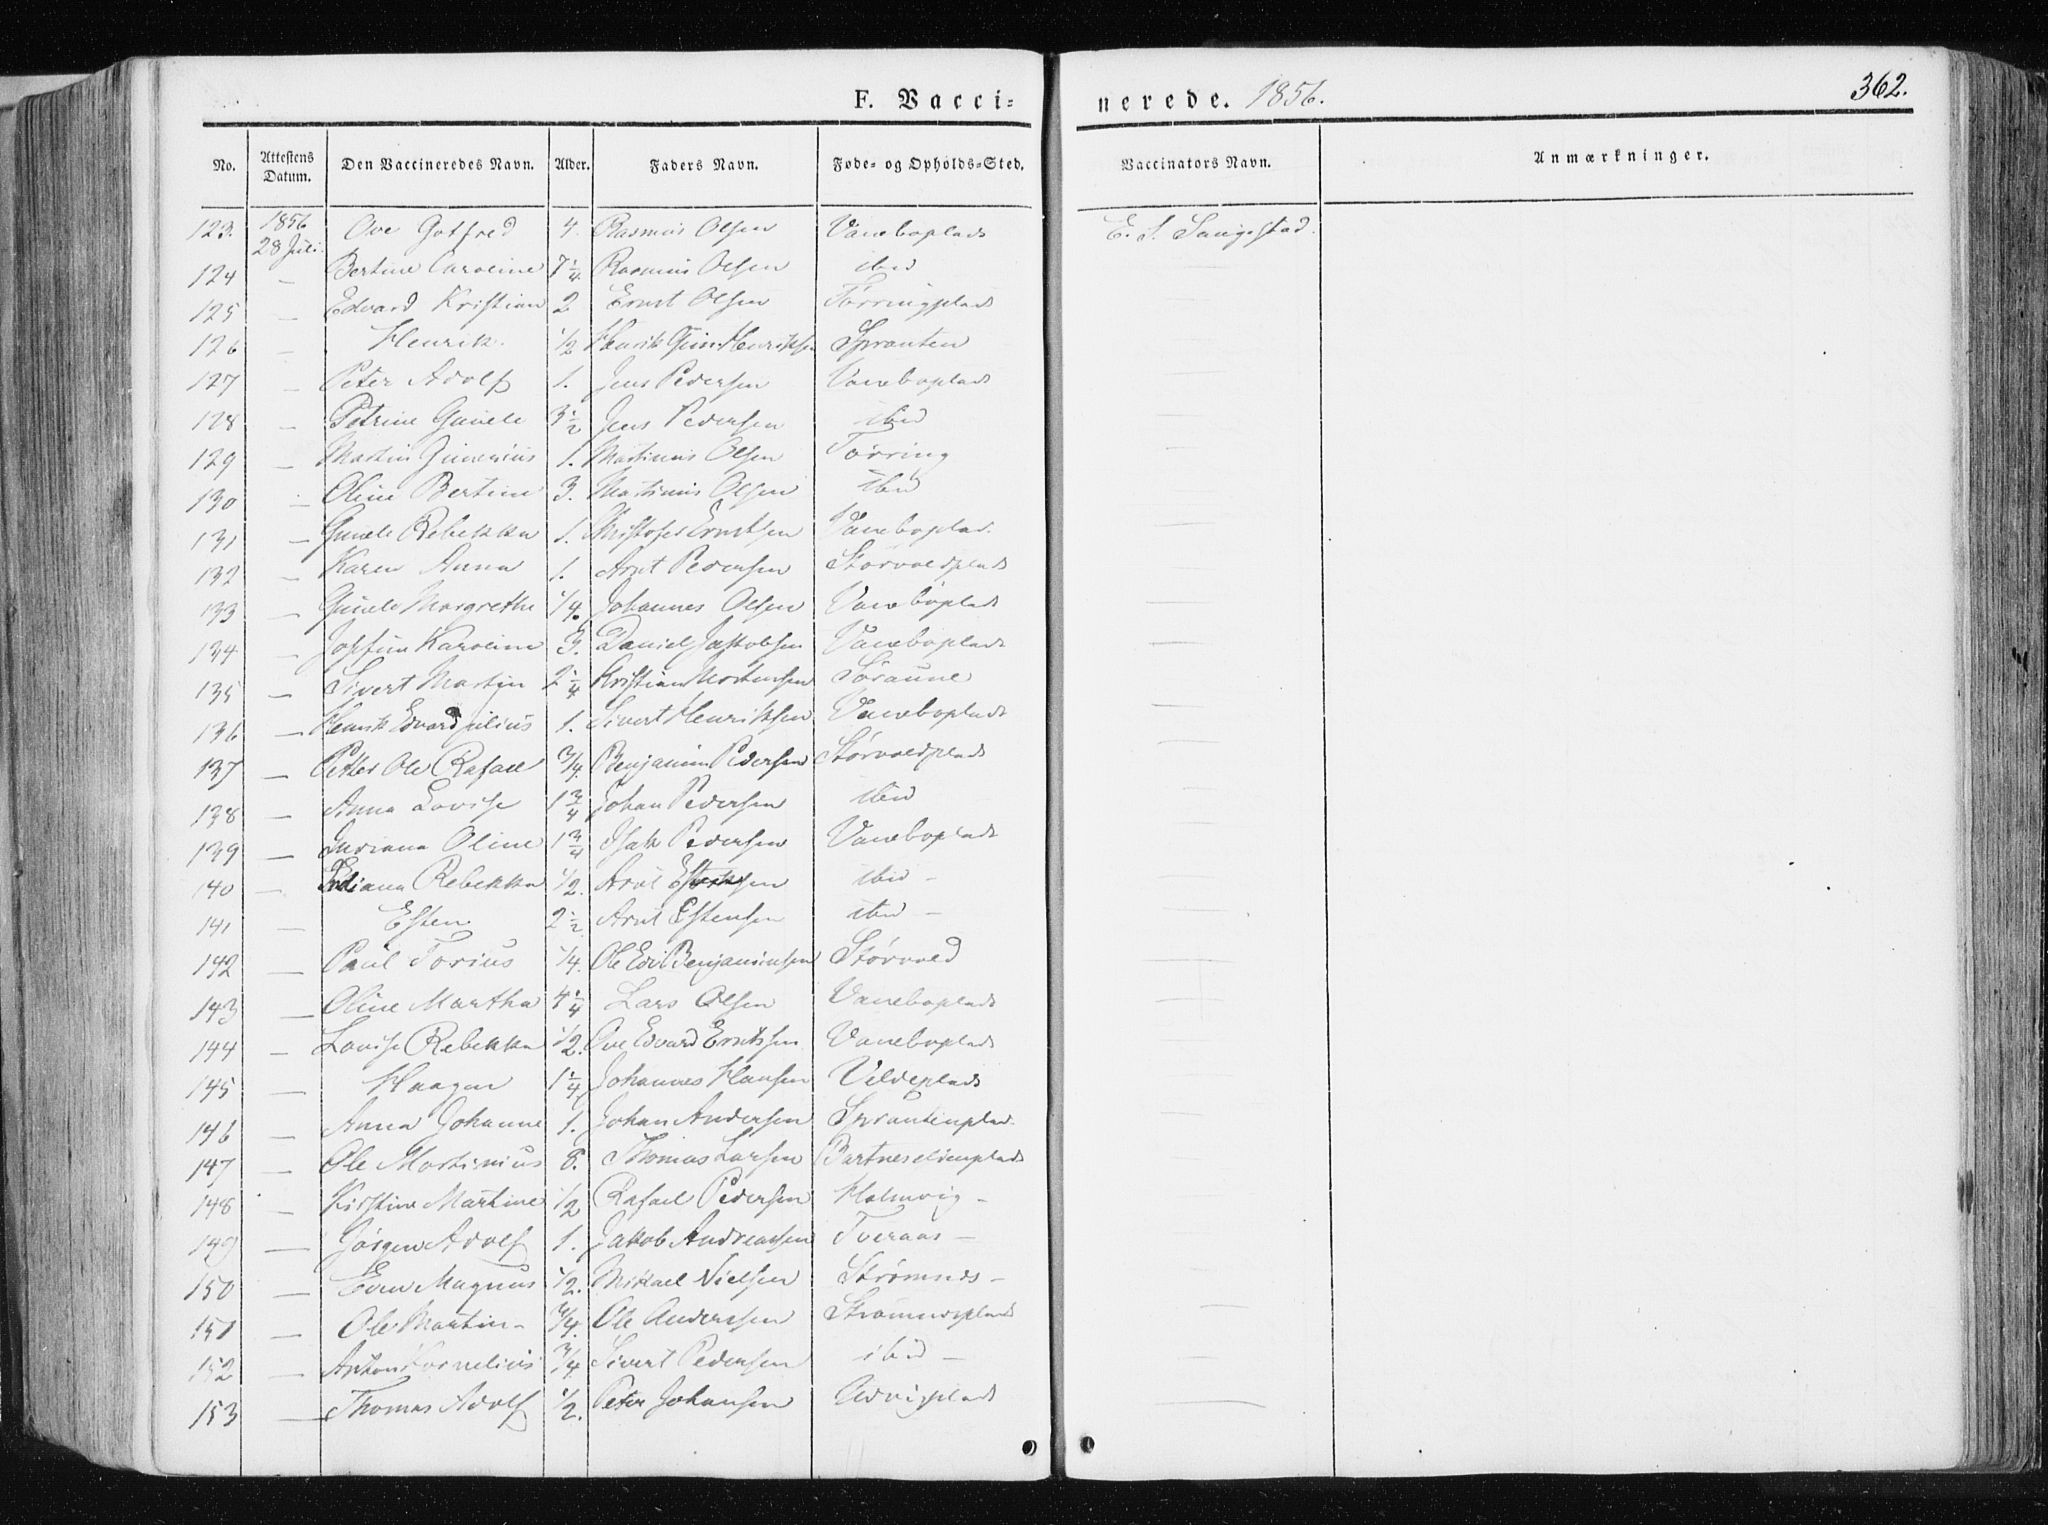 F. Vacci-
nerede. 1856.
362.
No. Attestens Datum. Den Vaccineredes Navn. Alder. Faders Navn. Føde- og Opholds-Sted. Vaccinators Navn. Anmærkninger.
123. 1856 28 Juli Ove Gotfred 4. Rasmus Olsen Vaneboplads E. S.
124 — Bertine Caroline 7 1/4 Rasmus Olsen ibid
125 — Edvard Kristian 2 Ernst Olsen Tørringplads
126 — Henrik 1/2 Henrik Henriksen Sprauten
127 — Peter Adolf 1. Jens Pedersen Vaneboplads
128 — Petrine Gunele 3 1/2 Jens Pedersen ibid
129 — Martin 1. Martinus Olsen Tørring
130 — Oline Bertine 3. Martinus Olsen ibid
131 — Gunele Rebekka 1. Kristofer Erntsen Vaneboplad.
132 — Karen Anna 1. Arnt Pedersen Størvoldplads
133 — Gunele Margrethe 1/4 Johannes Olsen Vaneboplads
134 — Josefine Karoline 3. Daniel Jakobsen Vaneboplads
135 — Sivert Martin 2 1/4 Kristian Mortensen Søraune
136 — Henrik Edvard Julius 1. Sivert Henriksen Vaneboplads
137 — Petter Ole Rafael 3/4. Benjamin Pedersen Størvoldplads
138 — Anna Lovise 1 3/4 Johan Pedersen ibid
139 — Indiana Oline 1 3/4 Isak Pedersen Vaneboplads
140 — Rebekka 1/2. Arnt ibid —
141 — Esten 2 1/2. Arnt Estensen ibid —
142 — Paul Torius 1/4. Ole Edv Benjaminsen Størvold
143 — Oline Martha 4 1/4 Lars Olsen Vaneboplads
144 — Lovise Rebekka 1/2. Ove Edvard Erntsen Vaneboplads
145 — Haagen 1 1/4 Johannes Hansen Veldeplads
146 — Anna Johanne 1. Johan Andersen Sprautenplad.
147 — Ole Martinius 8. Thomas Larsen Bartneseidenplads
148 — Kirstine Martine 1/2 Rafael Pedersen Holmvig —
149 — Jørgen Adolf 1. Jakob Andreassen Tveraas —
150 — Even Magnus 1/2. Mikael Nielsen Strømnes —
151 — Ole Martin — 3/4. Ole Anderssen Strømnesplads
152 — Anton Kornelius 3/4 Sivert Pedersen ibid —
153 — Thomas Adolf 1/2. Peter Johansen Udvigplads